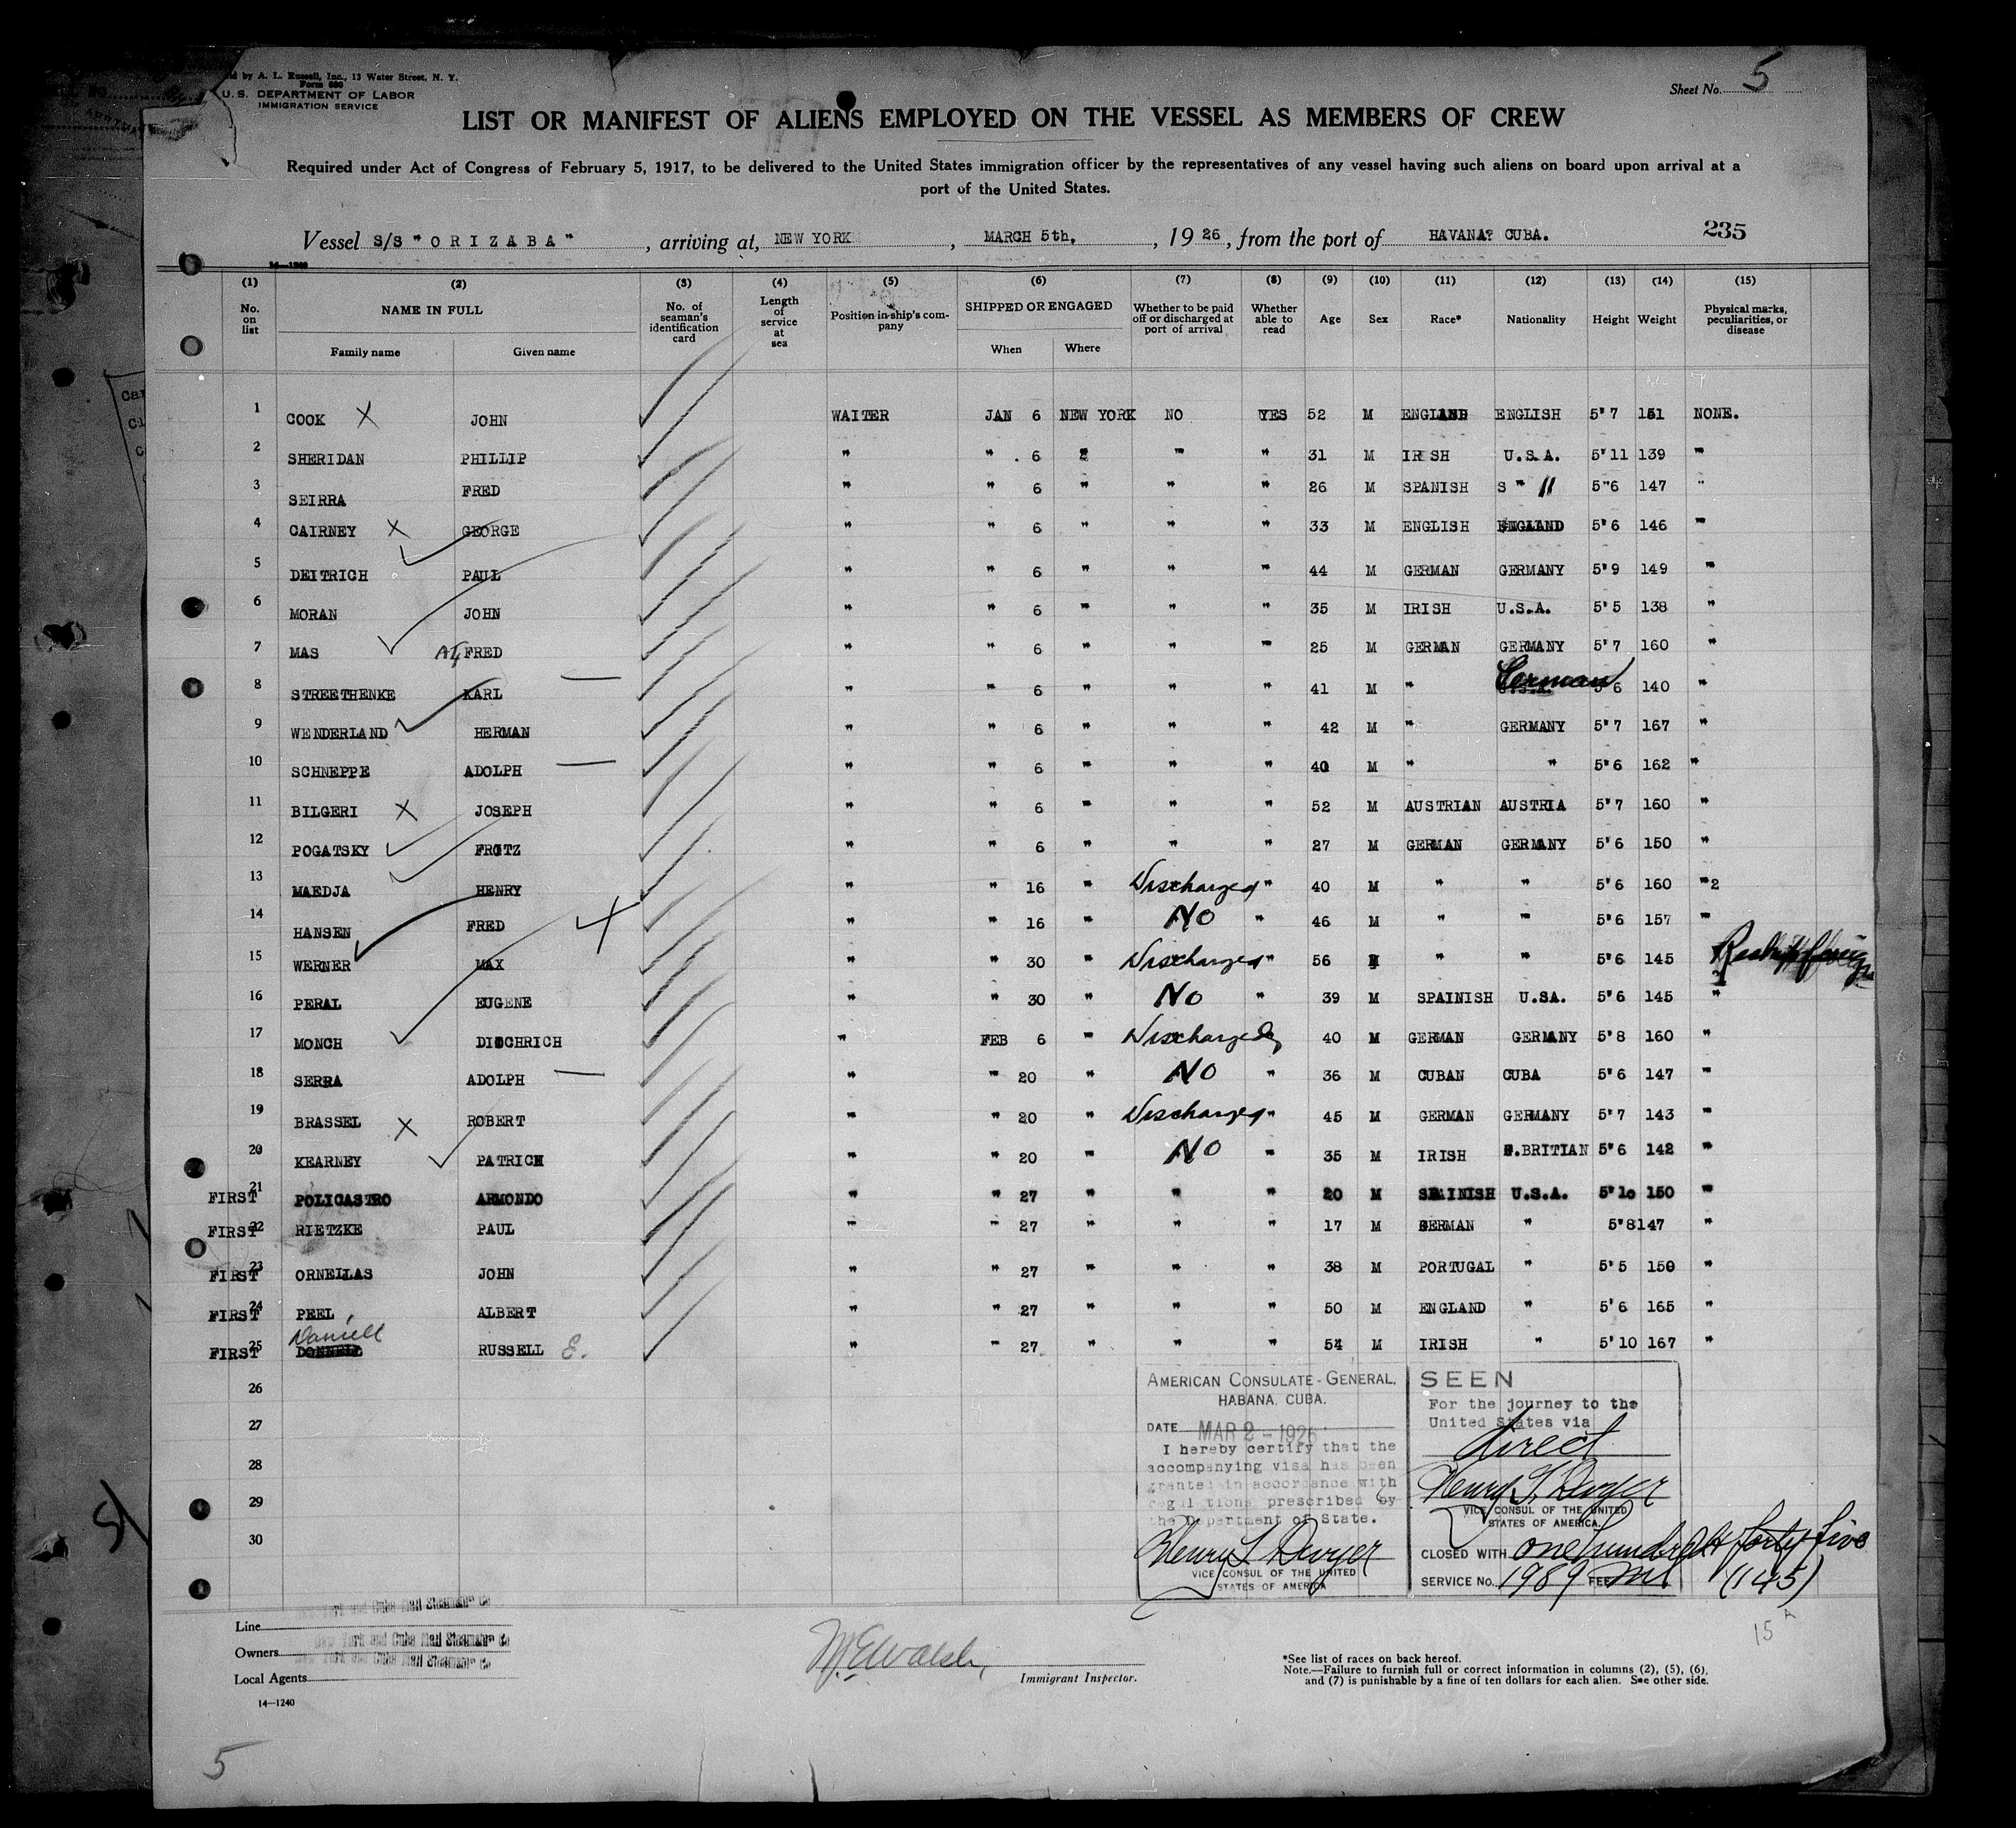 d by A. L. Russell, Inc., 13 Water Street, N. Y.
Form 680
U. S. DEPARTMENT OF LABOR
IMMIGRATION SERVICE
Sheet No. 5
LIST OR MANIFEST OF ALIENS EMPLOYED ON THE VESSEL AS MEMBERS OF CREW
Required under Act of Congress of February 5, 1917, to be delivered to the United States immigration officer by the representatives of any vessel having such aliens on board upon arrival at a
port of the United States.
Vessel S/S "ORIZABA", arriving at, NEW YORK, MARCH 5th, 1926, from the port of HAVANA? CUBA. 235
14—1240
(1) (2) (3) (4) (5) (6) (7) (8) (9) (10) (11) (12) (13) (14) (15)
No. on list NAME IN FULL Family name Given name No. of seaman's identification card Length of service at sea Position in ship's company SHIPPED OR ENGAGED When Where Whether to be paid off or discharged at port of arrival Whether able to read Age Sex Race* Nationality Height Weight Physical marks, peculiarities, or disease
1 COOK X JOHN WAITER JAN 6 NEW YORK NO YES 52 M ENGLAND ENGLISH 5'7 151 NONE.
2 SHERIDAN PHILLIP " " . 6 " " " 31 M IRISH U.S.A. 5'11 139 "
3 SEIRRA FRED " " 6 " " " 26 M SPANISH S " // 5"6 147 "
4 CAIRNEY X GEORGE " " 6 " " " 33 M ENGLISH ENGLAND 5'6 146 "
5 DEITRICH PAUL " " 6 " " " 44 M GERMAN GERMANY 5'9 149 "
6 MORAN JOHN " " 6 " " " 35 M IRISH U.S.A. 5'5 138 "
7 MAS Alf FRED " " 6 " " " 25 M GERMAN GERMANY 5'7 160 "
8 STREETHENKE KARL " " 6 " " " 41 M " German 5'6 140 "
9 WENDERLAND HERMAN " " 6 " " " 42 M " GERMANY 5'7 167 "
10 SCHNEPPE ADOLPH " " 6 " " " 40 M " " 5'6 162 "
11 BILGERI X JOSEPH " " 6 " " " 52 M AUSTRIAN AUSTRIA 5'7 160 "
12 POGATSKY FRITZ " " 6 " " " 27 M GERMAN GERMANY 5'6 150 "
13 MAEDJA HENRY " " 16 " Discharged " 40 M " " 5'6 160 "2
14 HANSEN FRED " " 16 " NO " 46 M " " 5'6 157 "
15 WERNER MAX " " 30 " Discharged " 56 M " " 5'6 145
16 PERAL EUGENE " " 30 " NO " 39 M SPAINISH U.SA. 5'6 145 "
17 MONCH DIOCHRICH " FEB 6 " Discharged " 40 M GERMAN GERMANY 5'8 160 "
18 SERRA ADOLPH " " 20 " NO " 36 M CUBAN CUBA 5'6 147 "
19 BRASSEL X ROBERT " " 20 " Discharged " 45 M GERMAN GERMANY 5'7 143 "
20 KEARNEY PATRICK " " 20 " NO " 35 M IRISH G.BRITIAN 5'6 142 "
FIRST 21 POLICASTRO ARMONDO " " 27 " " " 20 M SPAINISH U.S.A. 5'10 150 "
FIRST 22 RIETZKE PAUL " " 27 " " " 17 M GERMAN " 5'8 147 "
FIRST 23 ORNELLAS JOHN " " 27 " " " 38 M PORTUGAL " 5'5 150 "
FIRST 24 PEEL, ALBERT " " 27 " " " 50 M ENGLAND " 5'6 165 "
Daniell
FIRST 25 DONNELL RUSSELL E. " " 27 " " " 54 M IRISH " 5'10 167 "
26
27
28
29
30
AMERICAN CONSULATE-GENERAL.
HABANA. CUBA.
DATE MAR 2 - 1926
I hereby certify that the
accompanying visa has been
granted in accordance with
regulations prescribed by
the Department of State.
Henry L Dwyer
VICE CONSUL OF THE UNITED
STATES OF AMERICA
SEEN
For the journey to the
United States via
direct
Henry L Dwyer
VICE CONSUL OF THE UNITED
STATES OF AMERICA.
CLOSED WITH one hundred & forty five
SERVICE No. 1989 FEE nil (145)
15
Line New York and Cuba Mail Steamship Co
Owners New York and Cuba Mail Steamship Co
Local Agents New York and Cuba Mail Steamship Co
14—1240
Immigrant Inspector.
*See list of races on back hereof.
Note.—Failure to furnish full or correct information in columns (2), (5), (6),
and (7) is punishable by a fine of ten dollars for each alien. See other side.
5